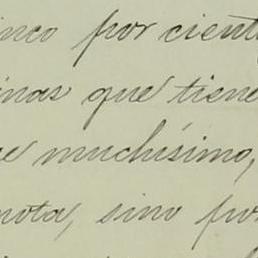 inco por cient
inas que tiene
e muchísimo,
nota, sino por